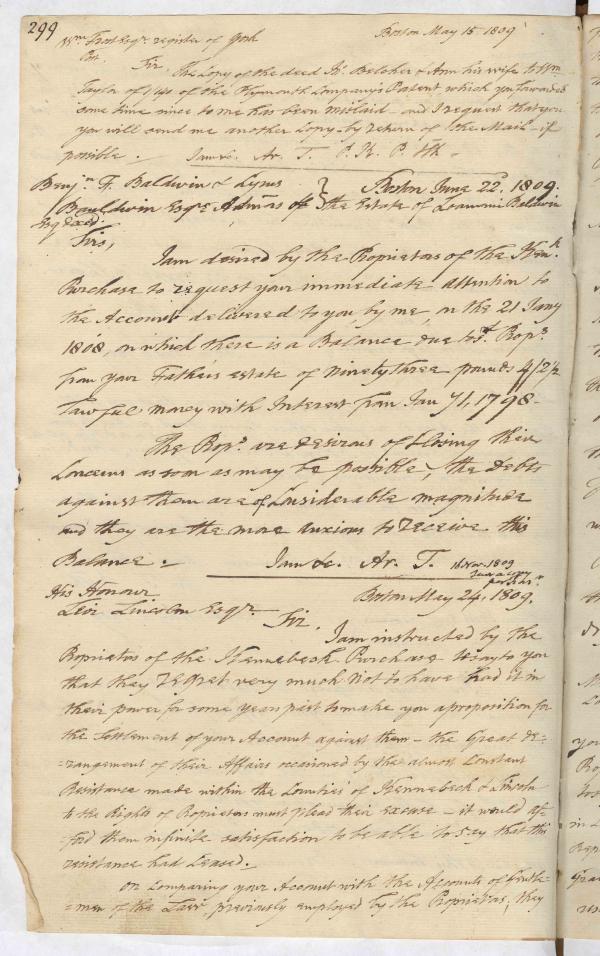 299
Wm Frost Esqr. register of York Boston May 15 1809
Sir The Copy of the deed Jr. Belcher & Ann his wife to Wm
Taylor of 1/40 of the Plymouth Company's Patent which you forwarded
some time since to me has been mislaid - and I request that you
you will send me another Copy by return of the Mail - if
possible. I am &c. Ar. T. P. K. P.
Benjn. F. Baldwin & Cyrus } Boston June 22d, 1809.
Bauldwin Esqrs Admrs of the Estate of Loammi Baldwin
Esq
Sirs,
I am desired by the Proprietors of the Kenk.
Purchase to request your immediate attention to
the Account delivered to you by me, on the 21 Jany
1808, on which there is a Balance due to sd. Proprs
from your Fathers estate of Ninety three pounds 4/2 1/2
Lawful money with Interest from Jany 1, 1798
The Proprs. are desirous of Closing their
Concerns as soon as may be possible, the debts
against them are of Considerable magnitude
and they are the more anxious to receive this
Balance. I am &c. Ar. T. 16 Nov. 1809
a copy
His Honour Boston May 24, 1809.
Levi Lincoln Esqr. Sir,
I am instructed by the
Proprietors of the Kennebeck Purchase to say to you
that they regret very much not to have had it in
their power for some years past to make you a proposition for
the Settlement of your Account against them - the Great de=
=rangement of their Affairs occasioned by the almost Constant
Resistance made within the Counties of Kennebeck & Lincoln
to the Rights of Proprietors must plead their excuse - it would af=
=ford them infinite satisfaction to be able to say that this
resistance had Ceased.
On Comparing your Account with the Accounts of Gentle=
=men of the Law, previously employed by the Proprietors, they